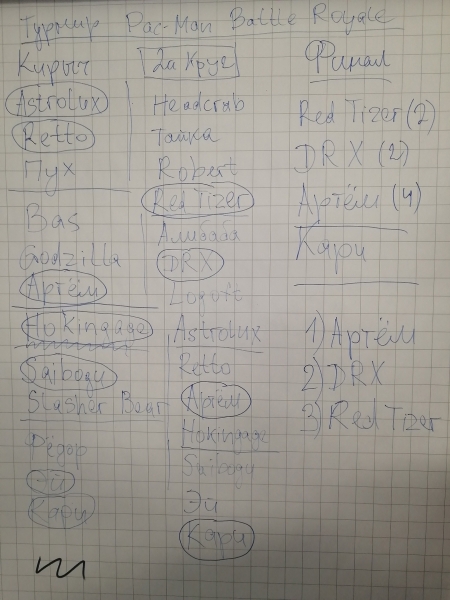 Турнир Pac-Man Battle Royale
Кирыч
Astrolux
Retto
Пух
Bas
Godzilla
Артём
Hokingage
Saibogu
Slasher Bear
Фёдор
Эй
Кари
2й Круг
Headcrab
Тайка
Robert
Red Tizer
Алибаба
DRX
Logovt
Astrolux
Retto
Артём
Hokingage
Saibogu
Эй
Кари
Финал
Red Tizer (2)
DRX (2)
Артём (4)
Кари
1) Артём
2) DRX
3) Red Tizer